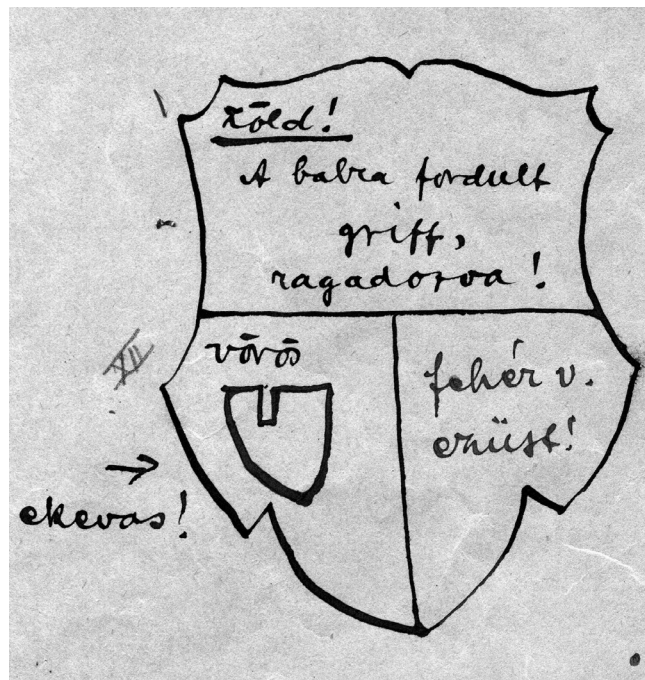 zöld!
A balra fordult
griff,
ragadozva!
XII
vörös
fehér v.
ezüst!
ekevas!